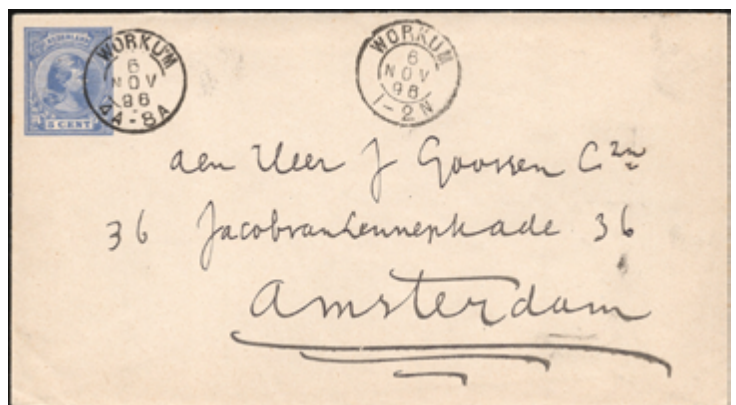 NEDERLAND
5 CENT
WORKUM
6
NOV
96
4A-8A
WORKUM
6
NOV
96
1-2N
aen Heer J Goossen Czn
36 Jacob van Lennepkade 36
Amsterdam